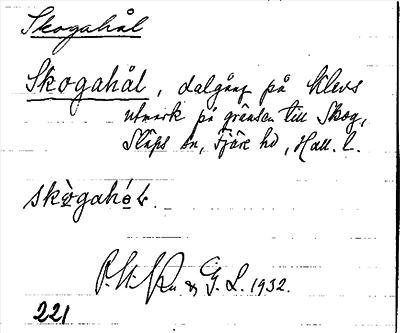 Skogahål
Skogahål, dalgång på Klevs
utmark på gränsen till Skog,
Släps sn, Fjäre hd, Hall. l.
skò̱gahó̱l.
G. L. 1932.
221